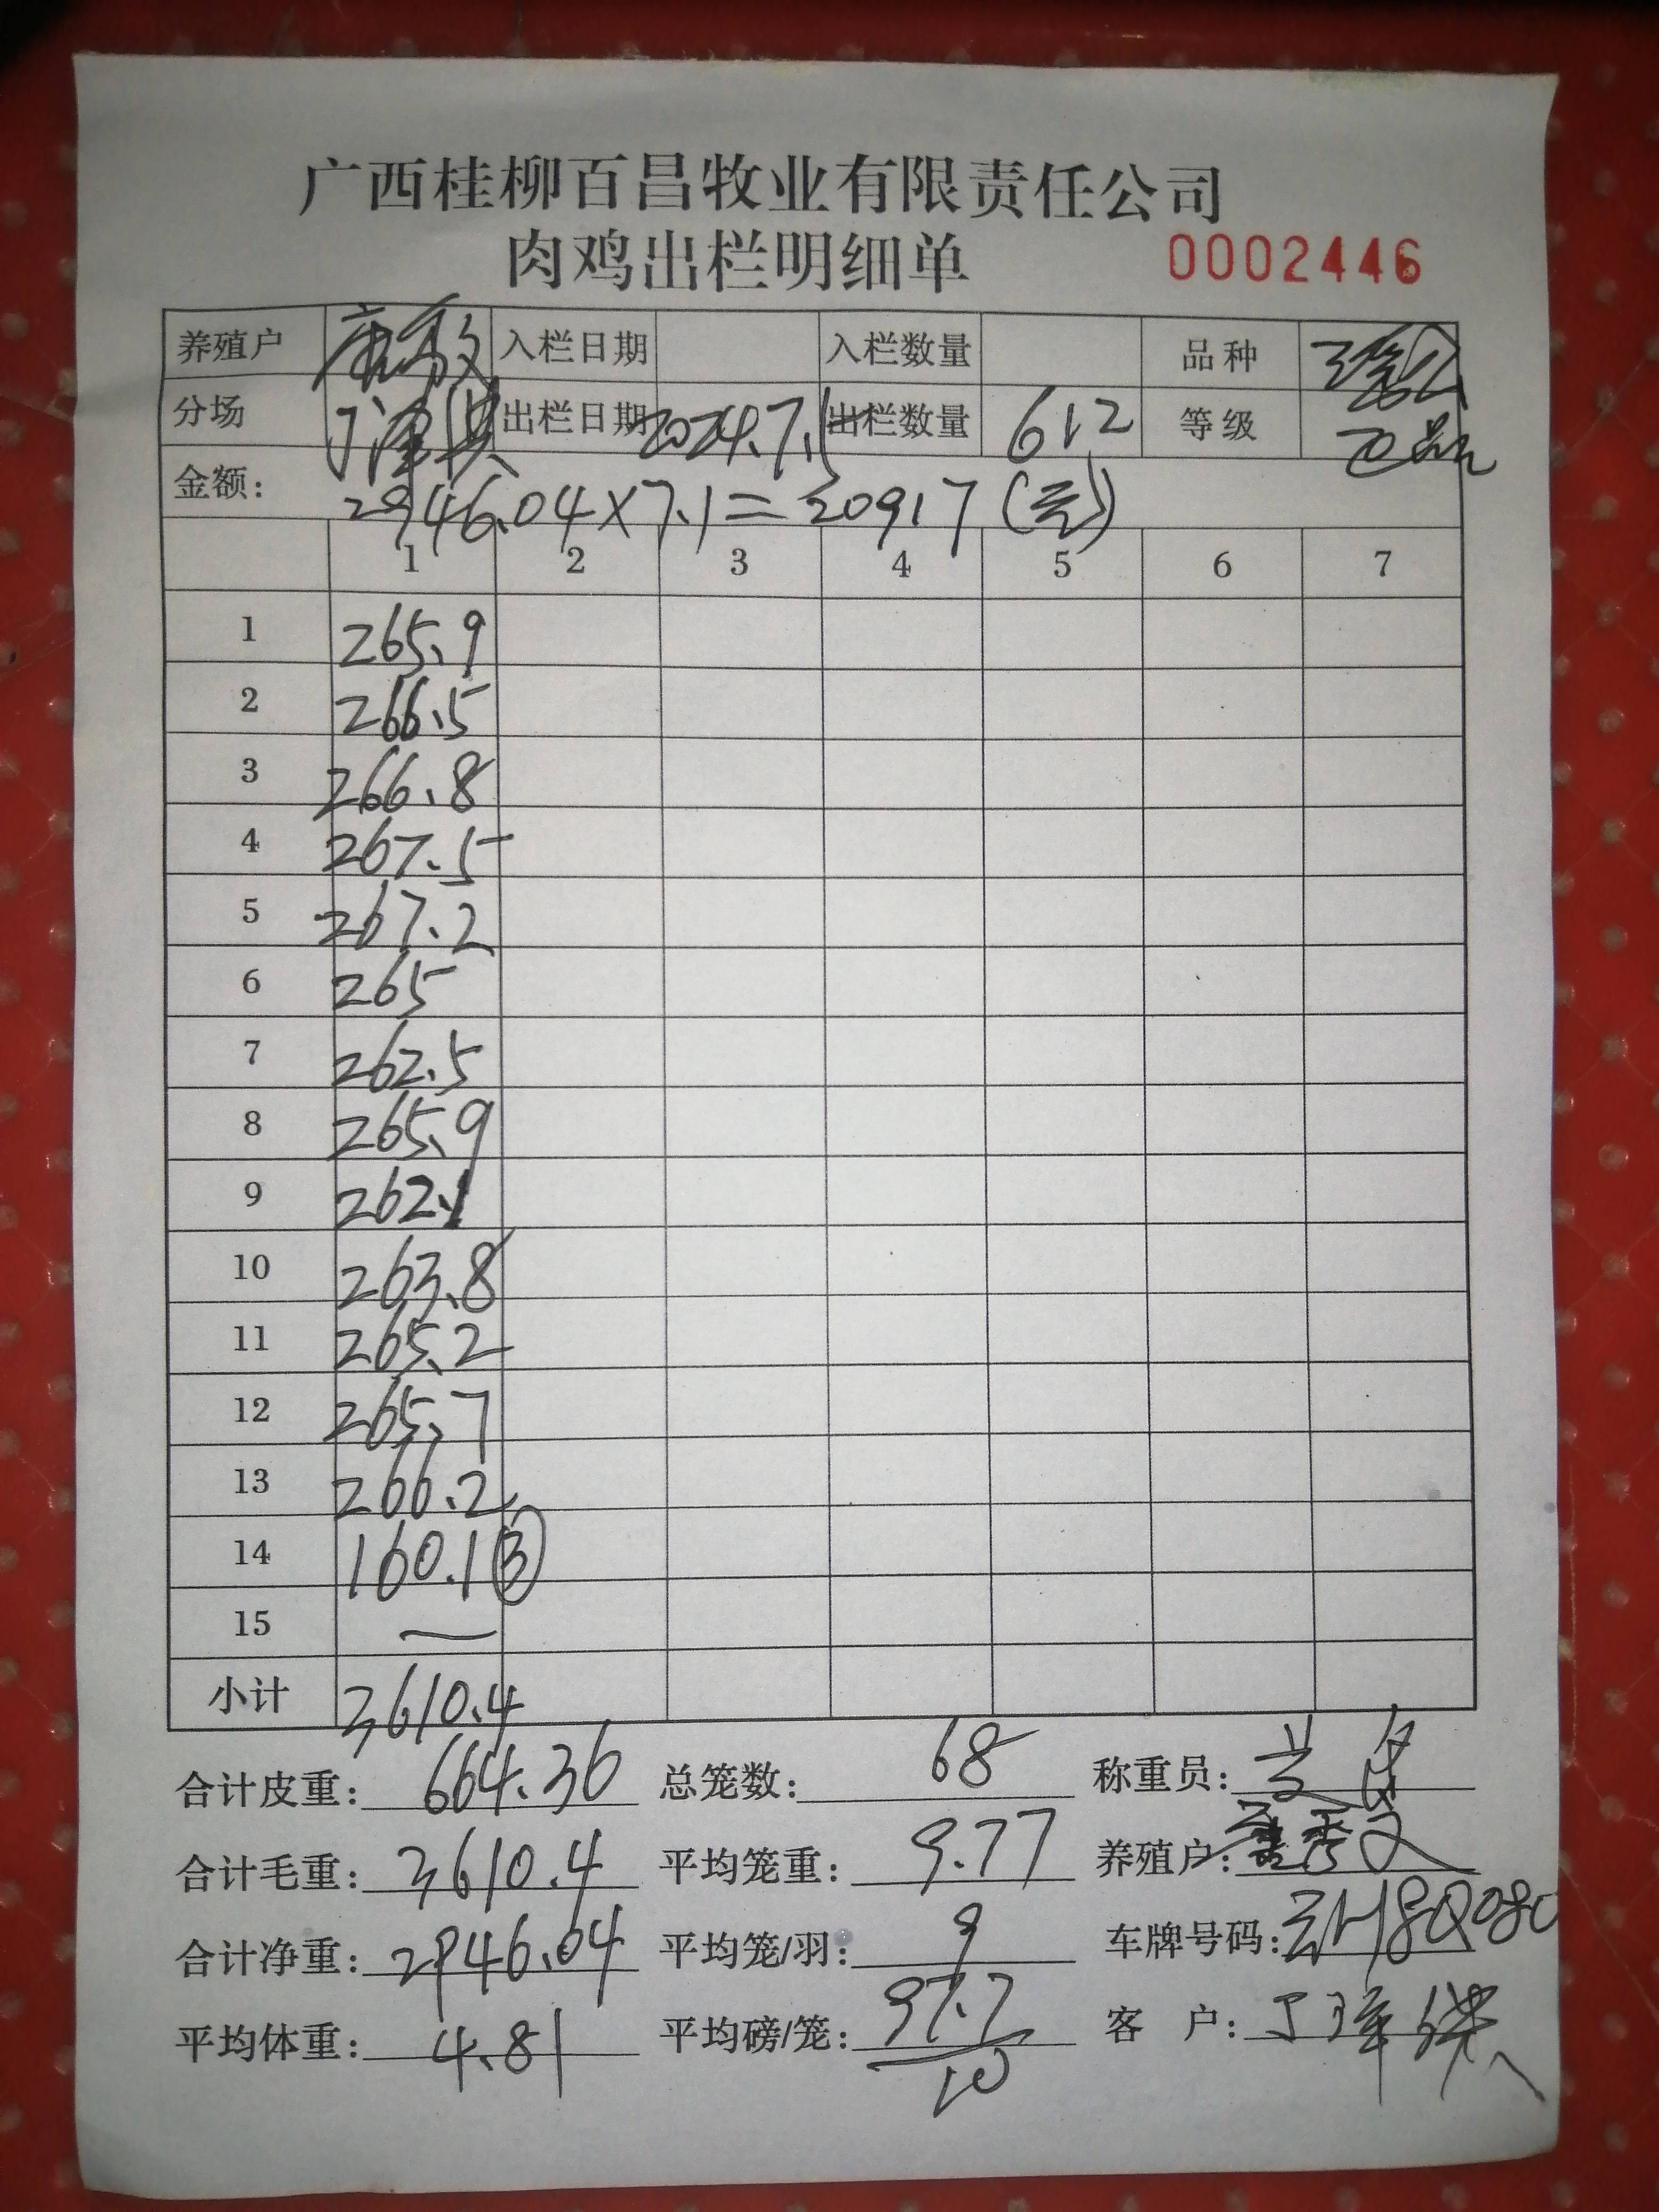 广西桂柳百昌牧业有限责任公司
肉鸡出栏明细单 0002446
养殖户 入栏日期 入栏数量 品种
分场 出栏日期 2024.7.15 出栏数量 612 等级
金额: 2946.04×7.1=20917(元)
1 2 3 4 5 6 7
1 265.9
2 266.5
3 266.8
4 267.5
5 267.2
6 265
7 262.5
8 265.9
9 262.1
10 263.8
11 265.2
12 265.7
13 266.2
14 160.1 ③
15 —
小计 3610.4
合计皮重: 664.36 总笼数: 68 称重员:
合计毛重: 3610.4 平均笼重: 9.77 养殖户:
合计净重: 2946.04 平均笼/羽: 9 车牌号码: 云H8Q080
平均体重: 4.81 平均磅/笼: 97.7 客 户:
10